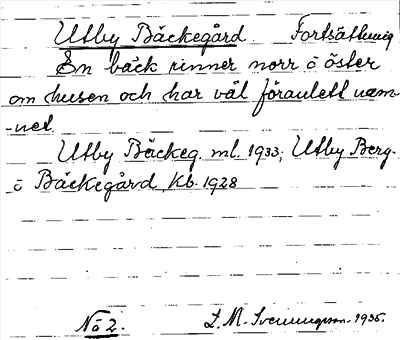 Utby Bäckegård. Fortsättning
En bäck rinner norr o öster
om husen och har väl föranlett nam-
-net.
Utby Bäckeg. ml. 1933; Utby Berg-
o Bäckegård, Kb. 1928
No 2. L. M. Svenungsson. 1935.